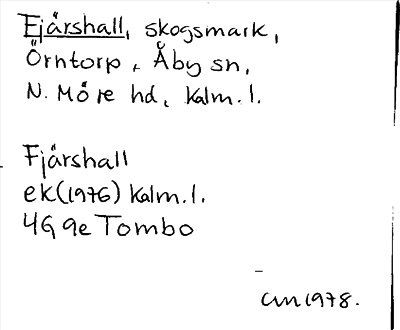 Fjärshall, skogsmark,
Örntorp, Åby sn,
N. Möre hd, Kalm. l.
Fjärshall
ek (1976) Kalm. l.
4G 9e Tombo
CM 1978.